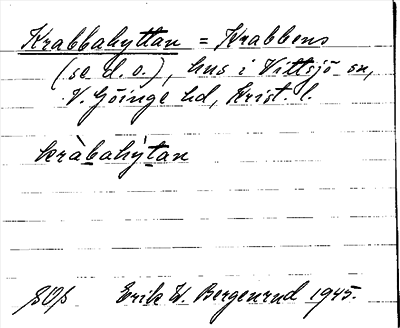 Krabbahyttan = Krabbens
(se d. o.), hus i Vittsjö sn,
V. Göinge hd, Krist. l.
kràbahỳtan
Erik W. Bergenrud 1945.